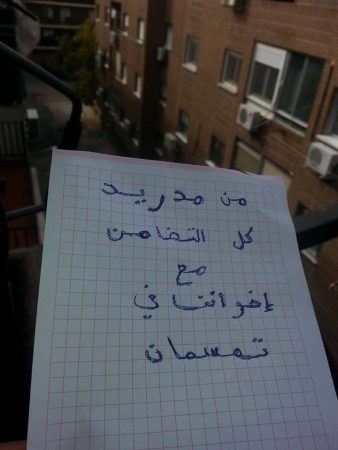 من مدريد
كل التضامن
مع
إخواننا في
تمسمان